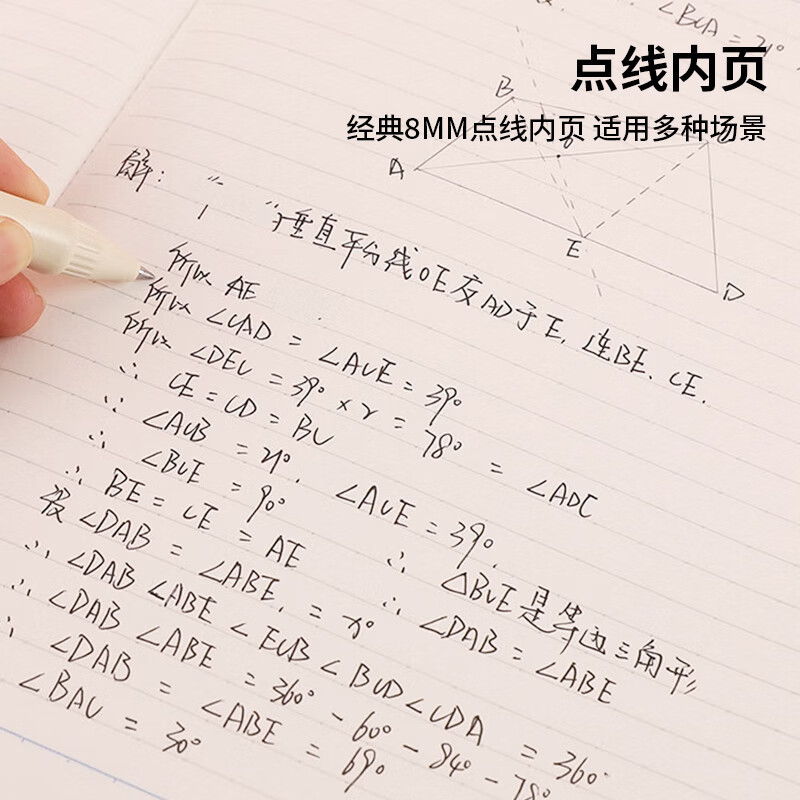 ∠BCA = 21°
点线内页
经典8MM点线内页 适用多种场景
B
A
E
D
解：
垂直平分线OE交AD于E, 连BE. CE.
所以 AE
所以 ∠CAD = ∠ACE = 39°
所以 ∠DEC = 39° × 2 = 78° = ∠ADC
∴ CE = CD = BC
∴ ∠ACB = 21°. ∠ACE = 39°.
∴ ∠BCE = 90° ∴ △BCE是等边三角形
∴ BE = CE = AE ∴ ∠DAB = ∠ABE
设 ∠DAB = ∠ABE. = x°
∴ ∠DAB ∠ABE ∠ECB ∠BCD ∠CDA = 360°
∴ ∠DAB ∠ABE = 360° - 60° - 84° - 78°
∴ ∠DAB = ∠ABE = 69°
∠BAC = 30°